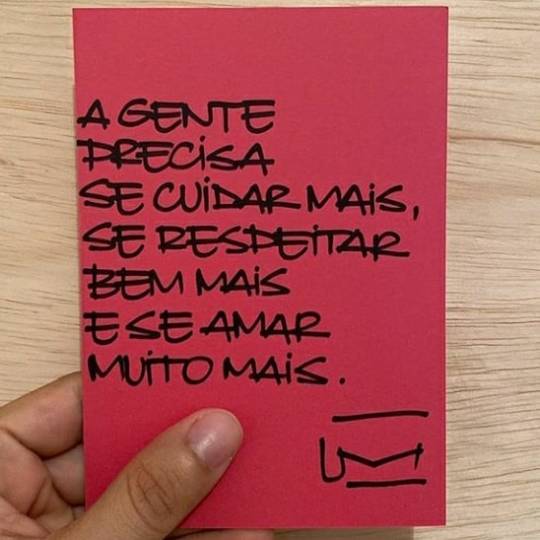 A GENTE
PRECISA
SE CUIDAR MAIS,
SE RESPEITAR
BEM MAIS
E SE AMAR
MUITO MAIS.